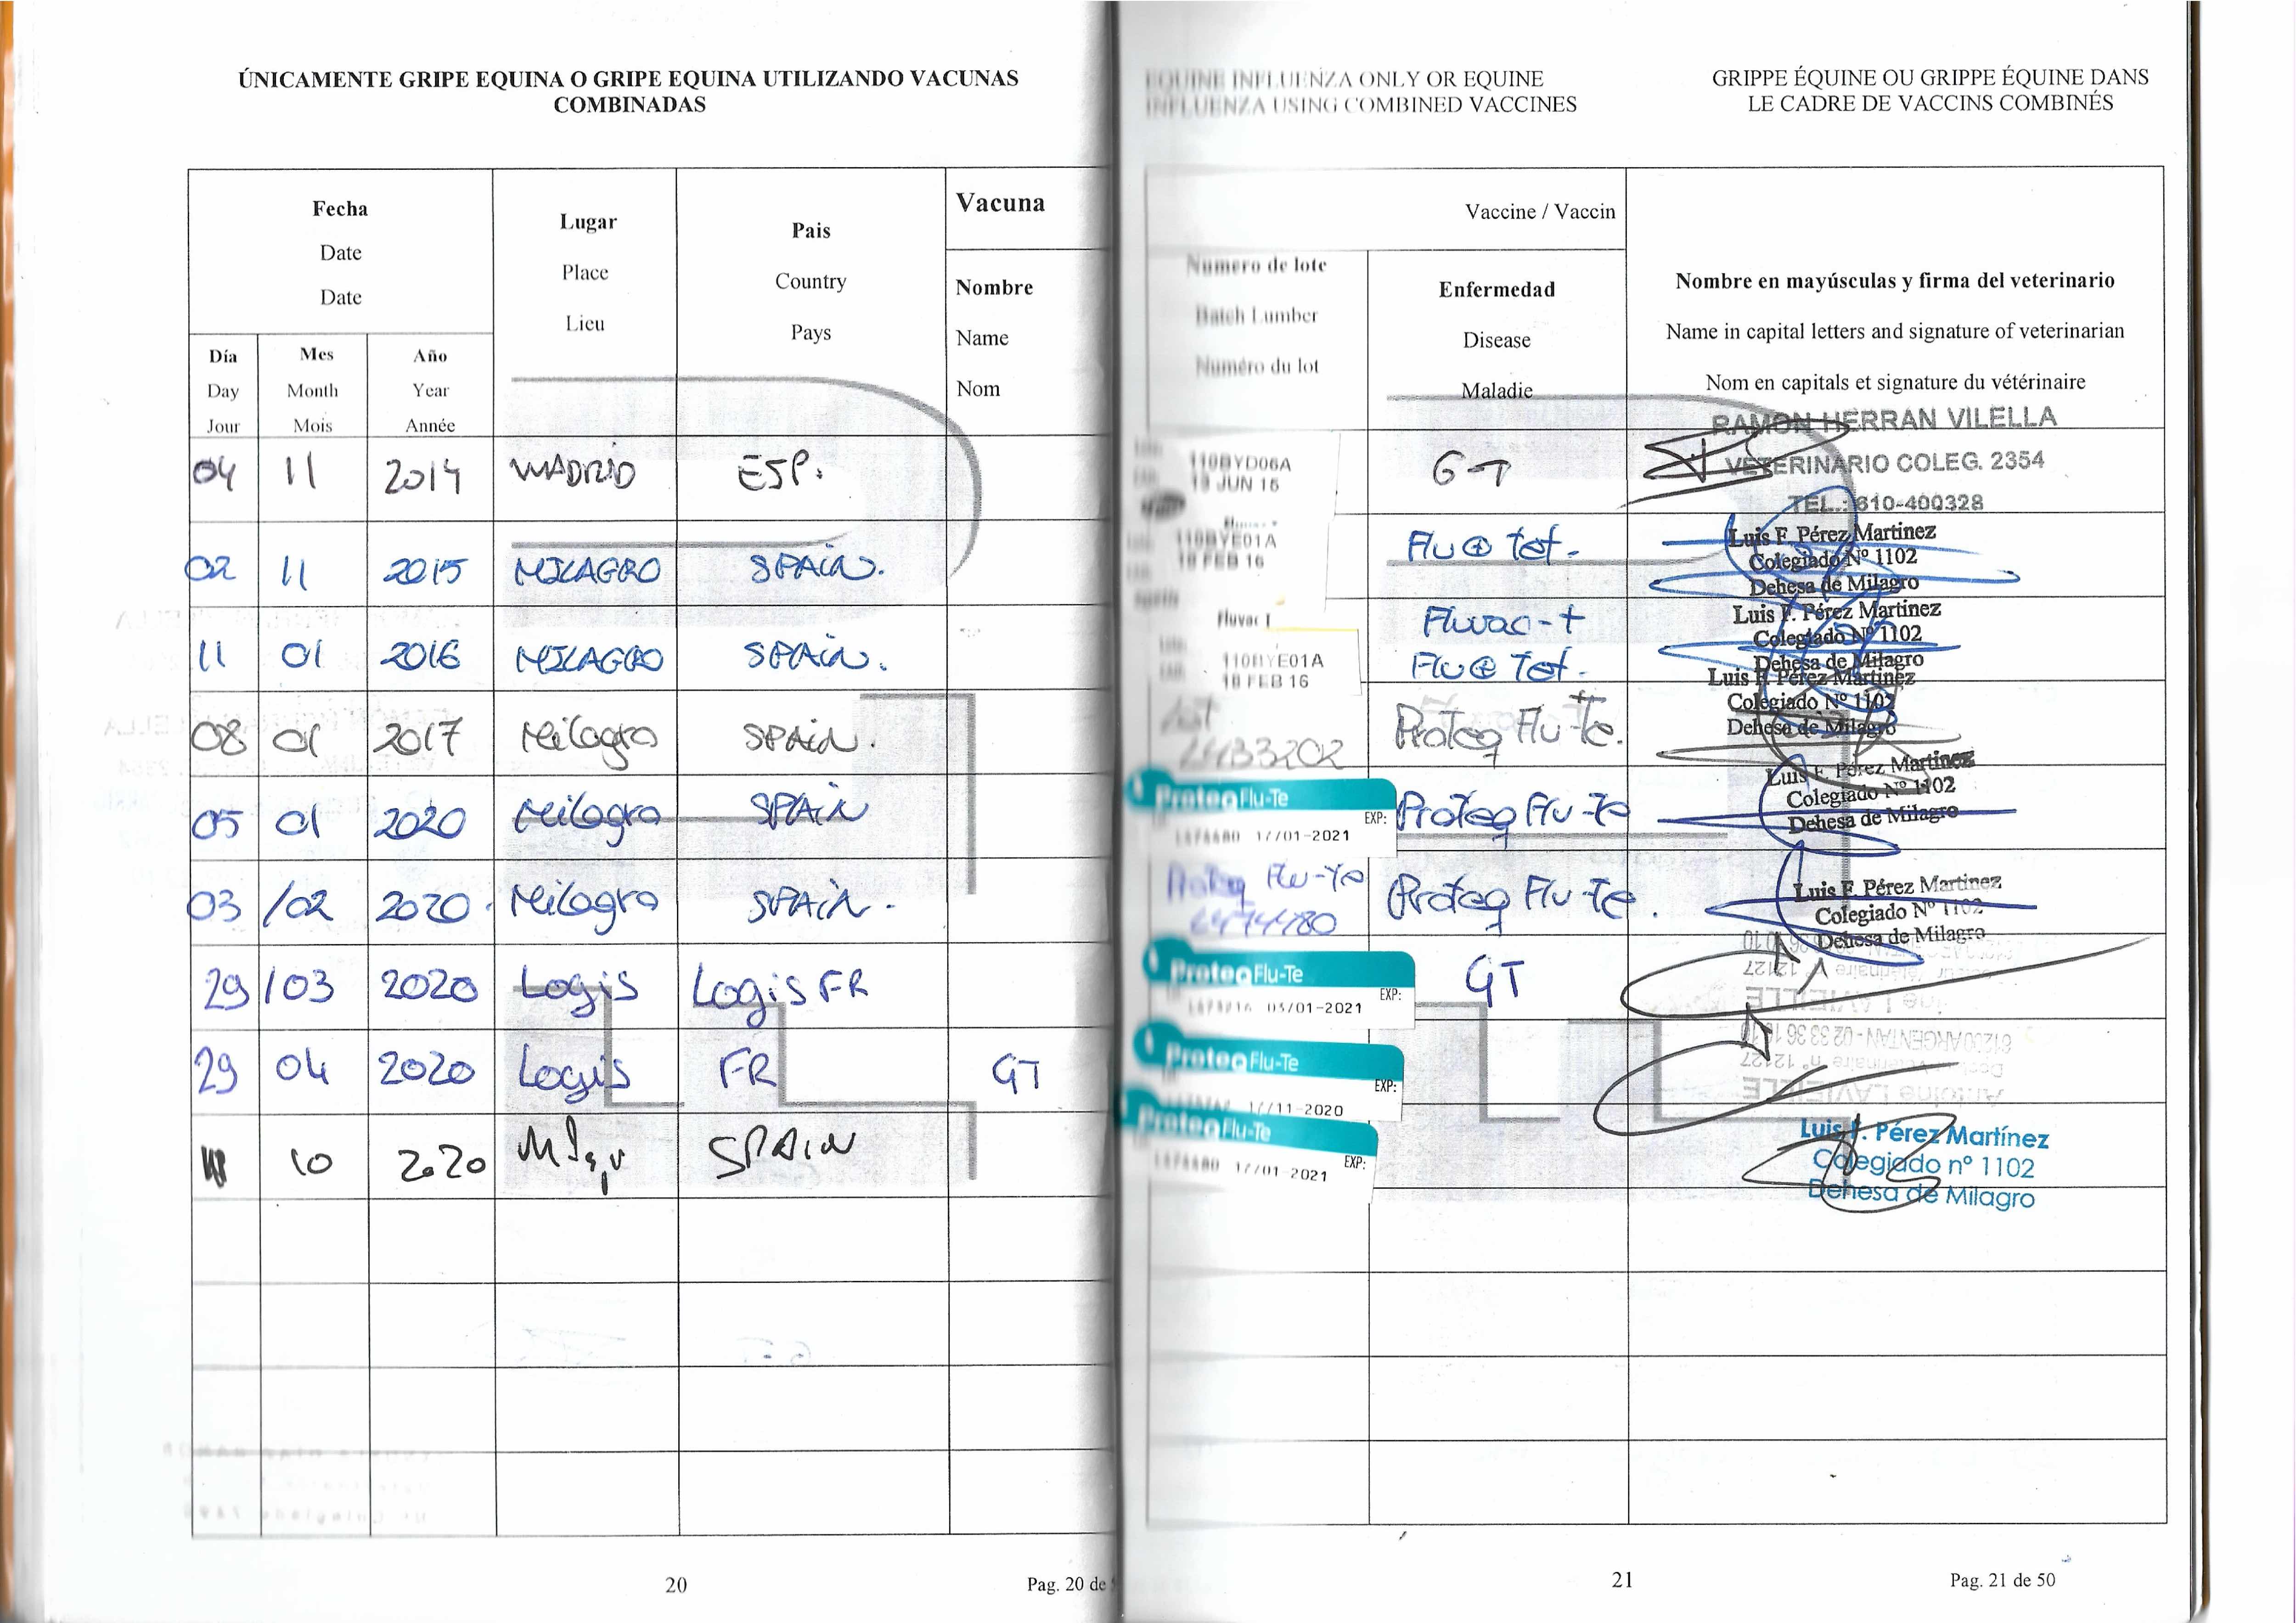 ÚNICAMENTE GRIPE EQUINA O GRIPE EQUINA UTILIZANDO VACUNAS
COMBINADAS
EQUINE INFLUENZA ONLY OR EQUINE
INFLUENZA USING COMBINED VACCINES
GRIPPE ÉQUINE OU GRIPPE ÉQUINE DANS
LE CADRE DE VACCINS COMBINÉS
Fecha
Date
Date
Día
Day
Jour
Mes
Month
Mois
Año
Year
Année
Lugar
Place
Lieu
Pais
Country
Pays
Vacuna
Nombre
Name
Nom
Vaccine / Vaccin
Numero de lote
Batch Lumber
Numéro du lot
Enfermedad
Disease
Maladie
Nombre en mayúsculas y firma del veterinario
Name in capital letters and signature of veterinarian
Nom en capitals et signature du vétérinaire
04 11 2014 MADRID ESP.
110BYD06A
JUN 16
GT
RAMON HERRAN VILELLA
VETERINARIO COLEG. 2354
TEL.: 610-400328
02 11 2015 MILAGRO SPAIN.
110BYE01A
18 FEB 16
Flu @ tet.
Luis F. Pérez Martinez
Colegiado Nº 1102
Dehesa de Milagro
11 01 2016 MILAGRO SPAIN.
Fluvac T
110BYE01A
18 FEB 16
Fluvac-t
Flu @ Tet.
Luis F. Pérez Martinez
Colegiado Nº 1102
Dehesa de Milagro
08 01 2017 Milagro SPAIN.
Lot
L433202
Proteq Flu-te.
Luis F. Pérez Martinez
Colegiado Nº 1102
Dehesa de Milagro
05 01 2020 Milagro SPAIN
ProteqFlu-Te
EXP:
17/01-2021
Proteq Flu-te
Luis F. Pérez Martinez
Colegiado Nº 1102
Dehesa de Milagro
03 /02 2020. Milagro SPAIN.
Proteq Flu-Te
Proteq Flu-te.
Luis F. Pérez Martinez
Colegiado Nº 1102
Dehesa de Milagro
29 /03 2020 Logis Logis FR
ProteqFlu-Te
EXP:
03/01-2021
GT
29 04 2020 Logis FR GT
ProteqFlu-Te
EXP:
17/11-2020
61200 ARGENTAN - 02 33 36 10 10
Antoine LAVIEILLE
10 2020 SPAIN
ProteqFlu-Te
EXP:
17/01-2021
Luis F. Pérez Martínez
Colegiado nº 1102
Dehesa de Milagro
20
Pag. 20 de
21
Pag. 21 de 50